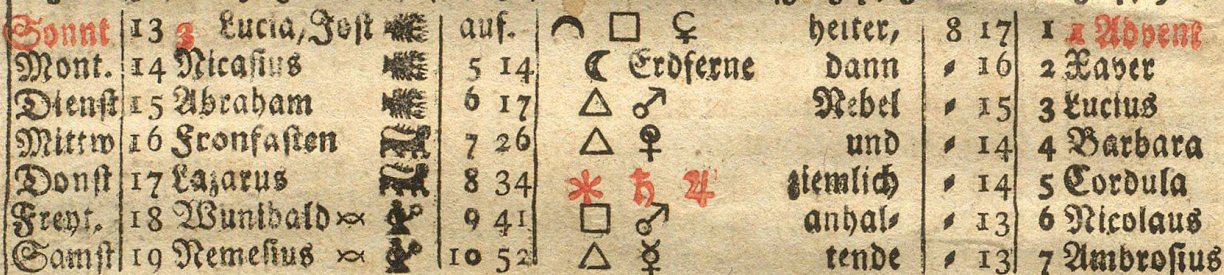 Sonnt 13 3 Lucia, Jost auf. □ ♀ heiter, 8 17 1 1 Advent
Mont. 14 Nicasius 5 14 ☾ Erdferne dann ⸗ 16 2 Xaver
Dienst 15 Abraham 6 17 △ ♂ Nebel ⸗ 15 3 Lucius
Mittw 16 Fronfasten 7 26 △ ♀ und ⸗ 14 4 Barbara
Donst 17 Lazarus 8 34 ⚹ ♄ ♃ ziemlich ⸗ 14 5 Cordula
Freyt. 18 Wunibald 9 41 □ ♂ anhal⸗ ⸗ 13 6 Nicolaus
Samst 19 Nemesius 10 52 △ ☿ tende ⸗ 13 7 Ambrosius